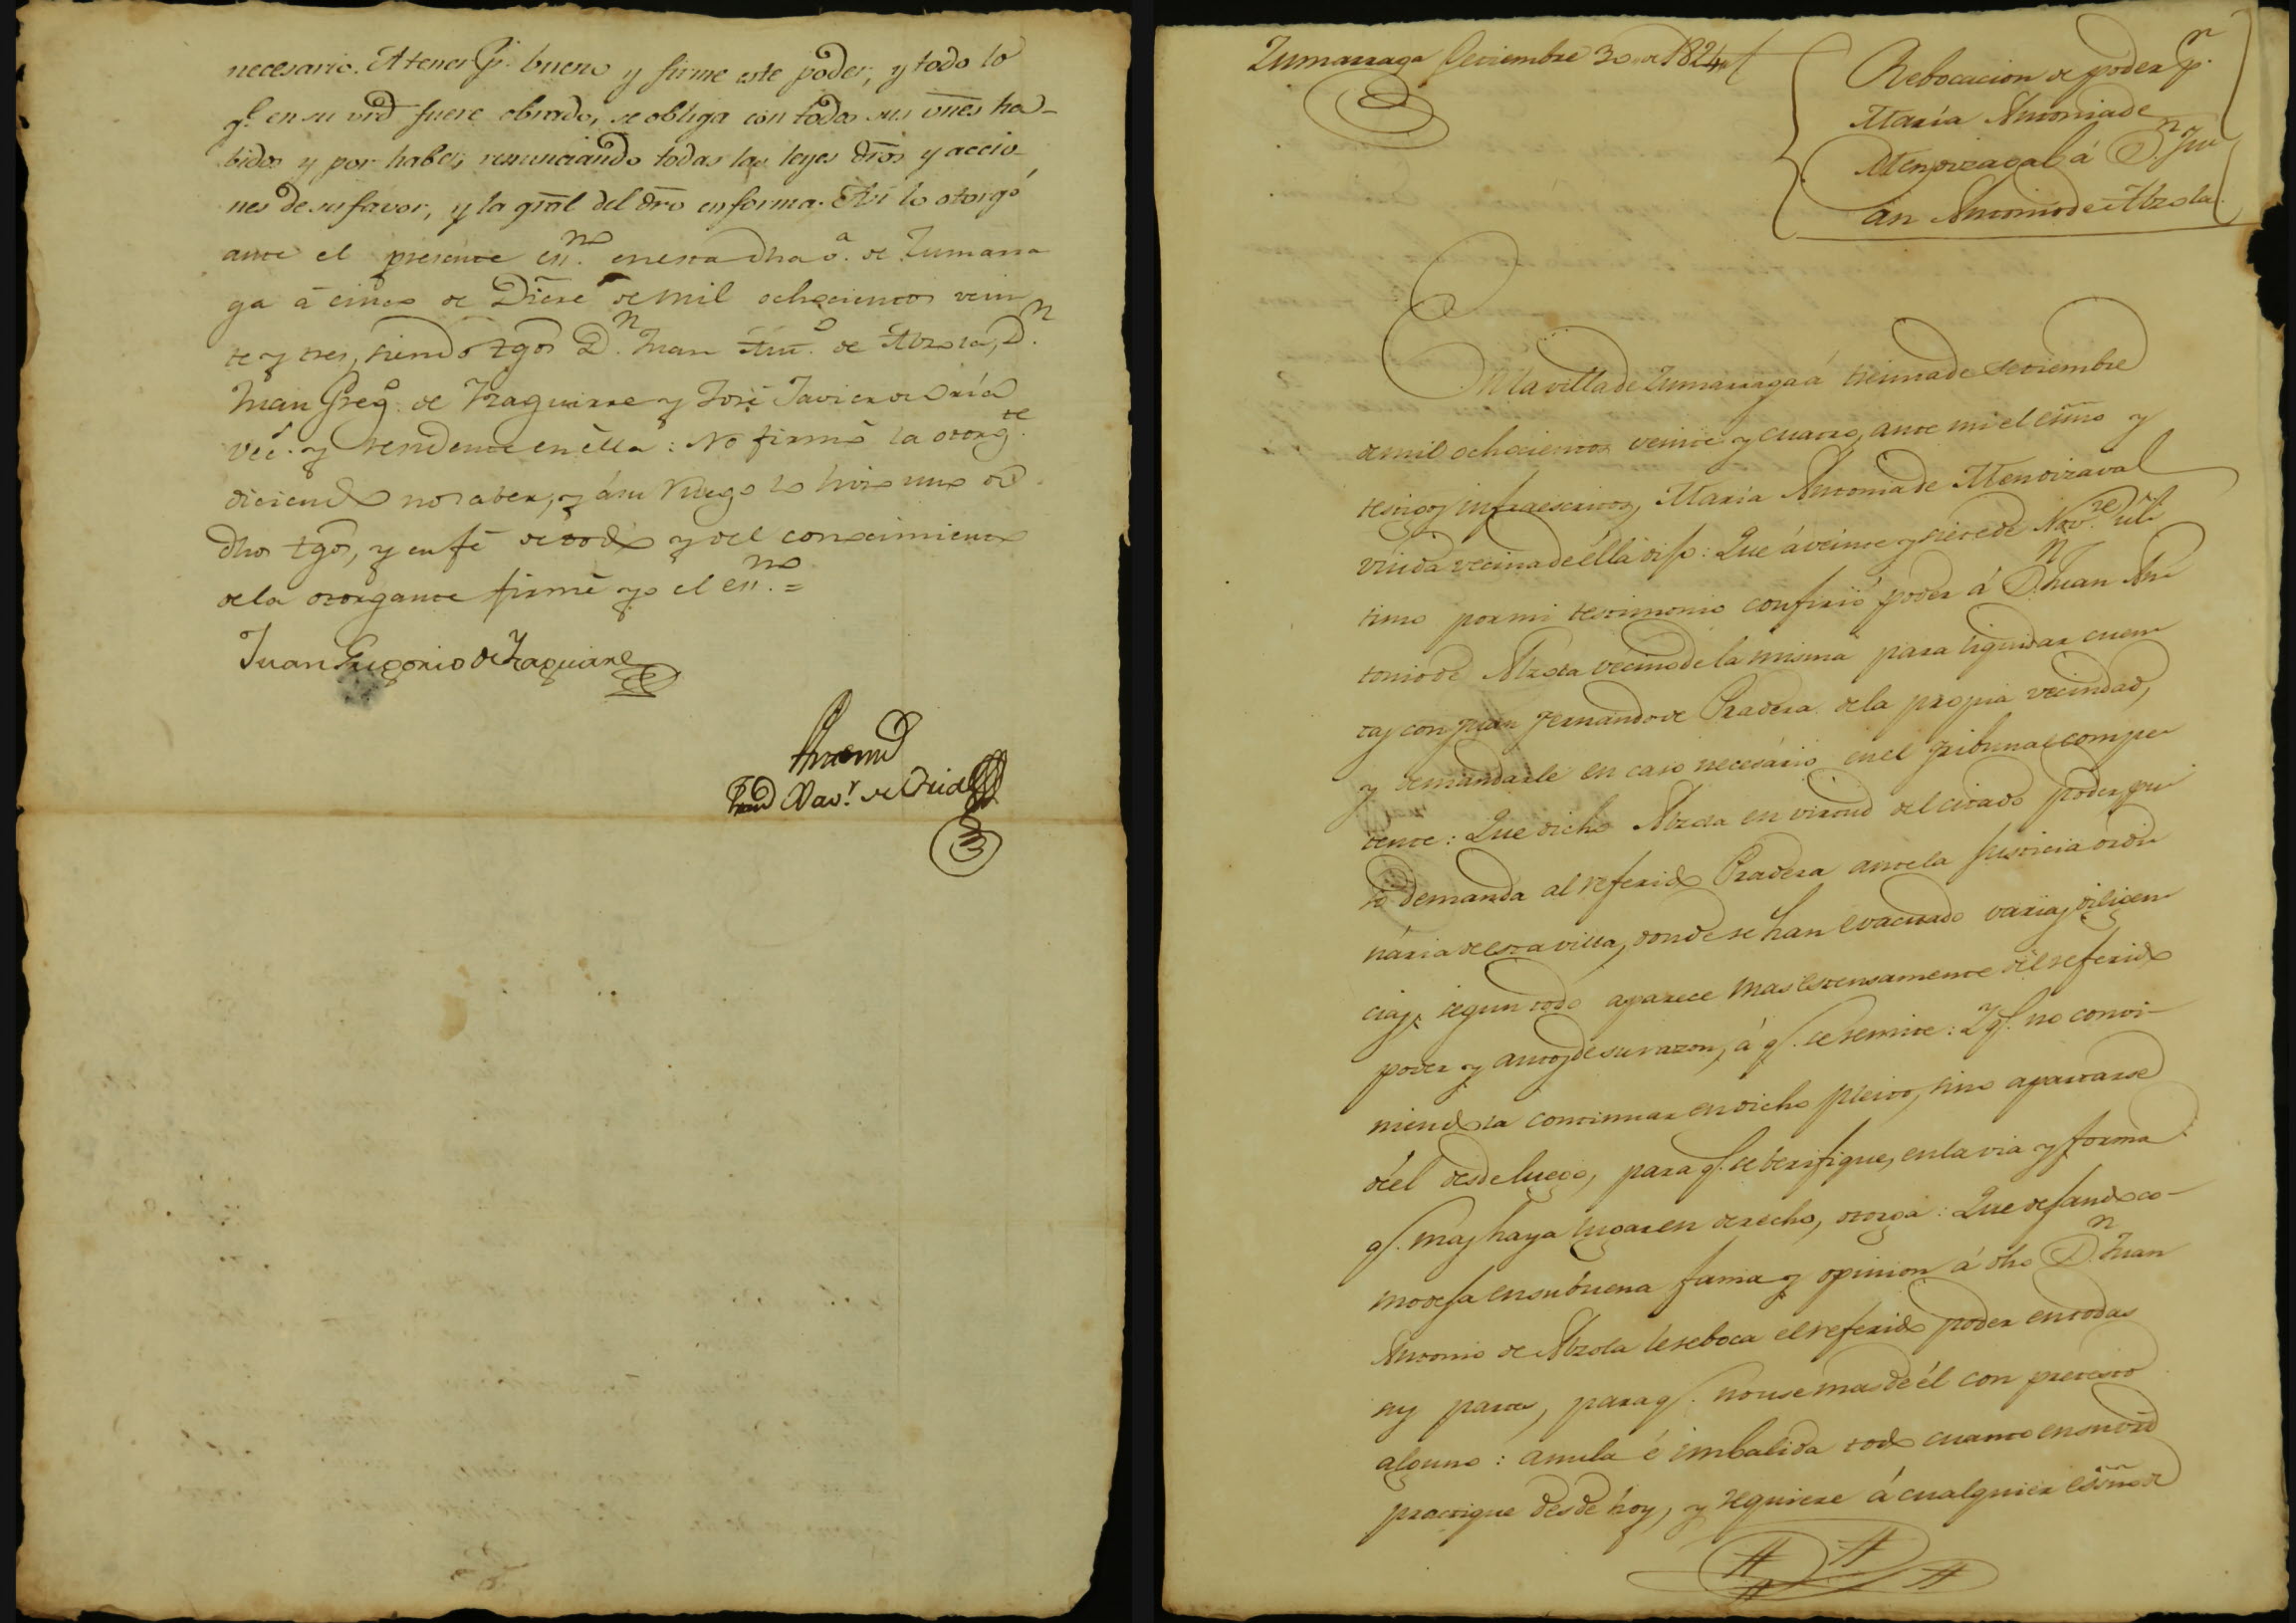 necesario. A tener pr. bueno y firme este poder, y todo lo
qe. en su vrd fuere obrado, se obliga con todos sus vnes ha-
bidos y por haber, renunciando todas las leyes dros y accio-
nes de su favor, y la gral del dro en forma. Asi lo otorgó
ante el presente esno. en esta dha va. de Zumarra
ga á cinco de Dicre de mil ochocientos vein
te y tres, siendo tgos Dn. Juan Anto. de Alzola, Dn.
Juan Grego. de Yzaguirre y José Javier de Oria
vecs. y residente en ella: No firmó la otorgte.
diciendo no saber, y á su ruego lo hizo uno de
dhos tgos, y en fé de todo y del conocimiento
de la otorgante firmé yo el esno. =
Juan Gregorio de Yzaguirre
Ante mi
Xavr. de Oria
Zumarraga Setiembre 30 de 1824
Rebocacion de poder pr.
María Antonia de
Mendizabal á Dn. Ju
an Antonio de Alzola
En la villa de Zumarraga á treinta de Setiembre
de mil ochocientos veinte y cuatro, ante mi el esno y
testigos infraescritos, María Antonia de Mendizaval
viuda vecina de élla dijo: Que á veinte y siete de Novre. úl
timo por mi testimonio confirió poder á Dn. Juan An
tonio de Alzola vecino de la misma para liquidar cuen
tas con Juan Fernando de Pradera de la propia vecindad,
y demandarle en caso necesário en el Tribunal compe
tente: Que dicho Alzola en virtud del citado poder, pu
so demanda al referido Pradera ante la Justicia ordi
nária de esta villa, donde se han evacuado varias diligen
cias, segun todo aparece mas estensamente del referido
poder y autos de su razon, á qe. se remite: Y qe. no convi-
niendola continuar en dicho pleito, sino apartarse
dél desde luego, para qe. se berifique, en la via y forma
qe. mas haya lugar en derecho, otorga: Que dejando co-
mo deja en su buena fama y opinion á dho Dn. Juan
Antonio de Alzola le reboca el referido poder en todas
sus partes, para qe. no use mas de él con pretesto
alguno: anula é imbalida todo cuanto en su vrd
practique desde hoy, y requiere á cualquier esno de